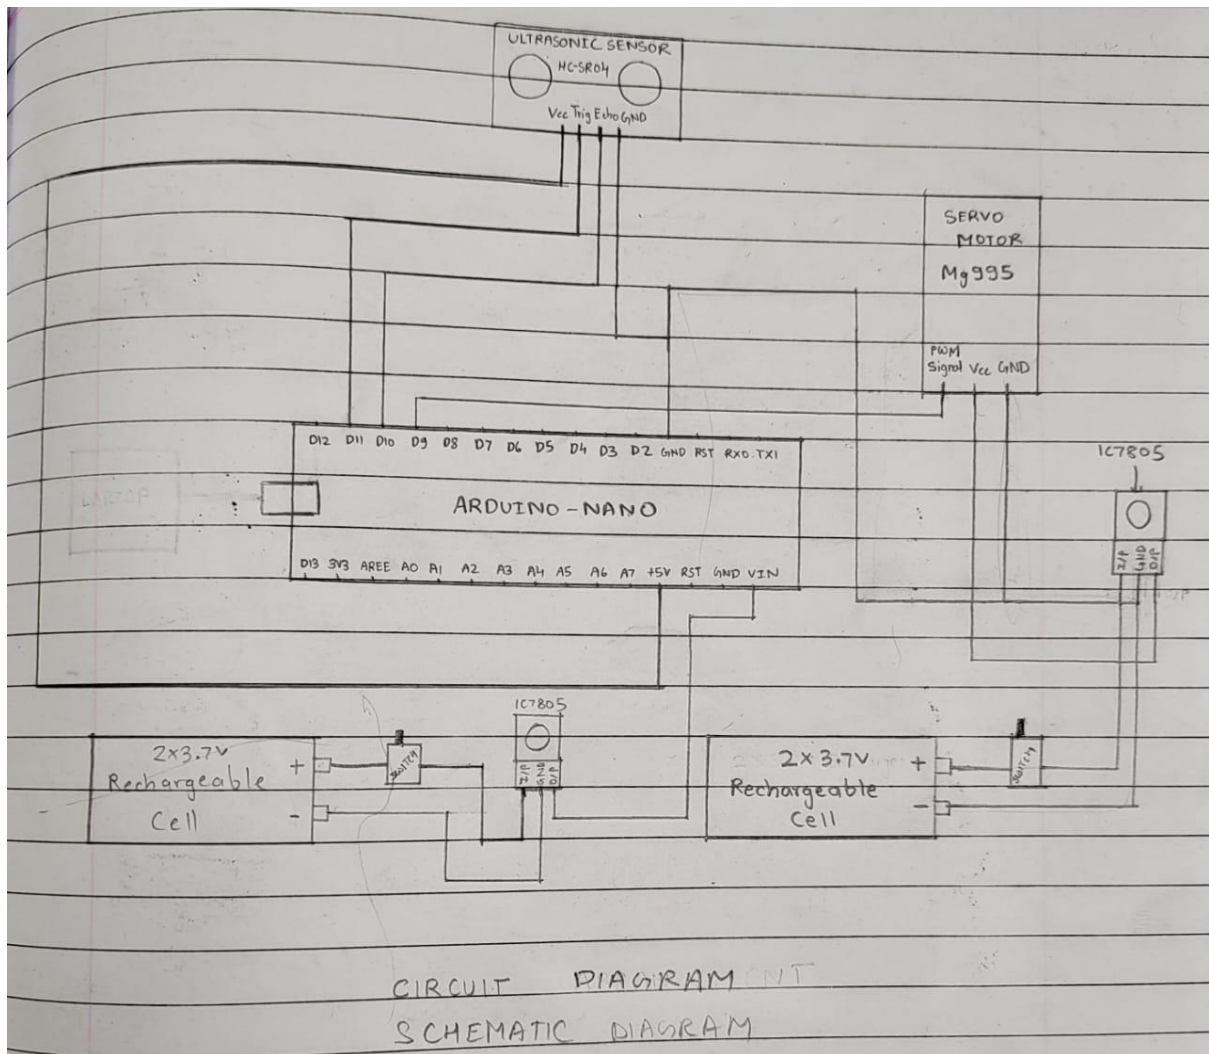 ULTRASONIC SENSOR
HC-SR04
Vcc Trig Echo GND
SERVO
MOTOR
Mg995
PWM
Signal Vcc GND
D12 D11 D10 D9 D8 D7 D6 D5 D4 D3 D2 GND RST RX0 TX1
IC7805
LAPTOP
ARDUINO-NANO
I/P GND O/P
D13 3V3 AREE A0 A1 A2 A3 A4 A5 A6 A7 +5V RST GND VIN
IC7805
2x3.7V
Rechargeable
Cell
+
-
SWITCH
I/P GND O/P
2x3.7V
Rechargeable
Cell
+
-
SWITCH
CIRCUIT DIAGRAM
SCHEMATIC DIAGRAM